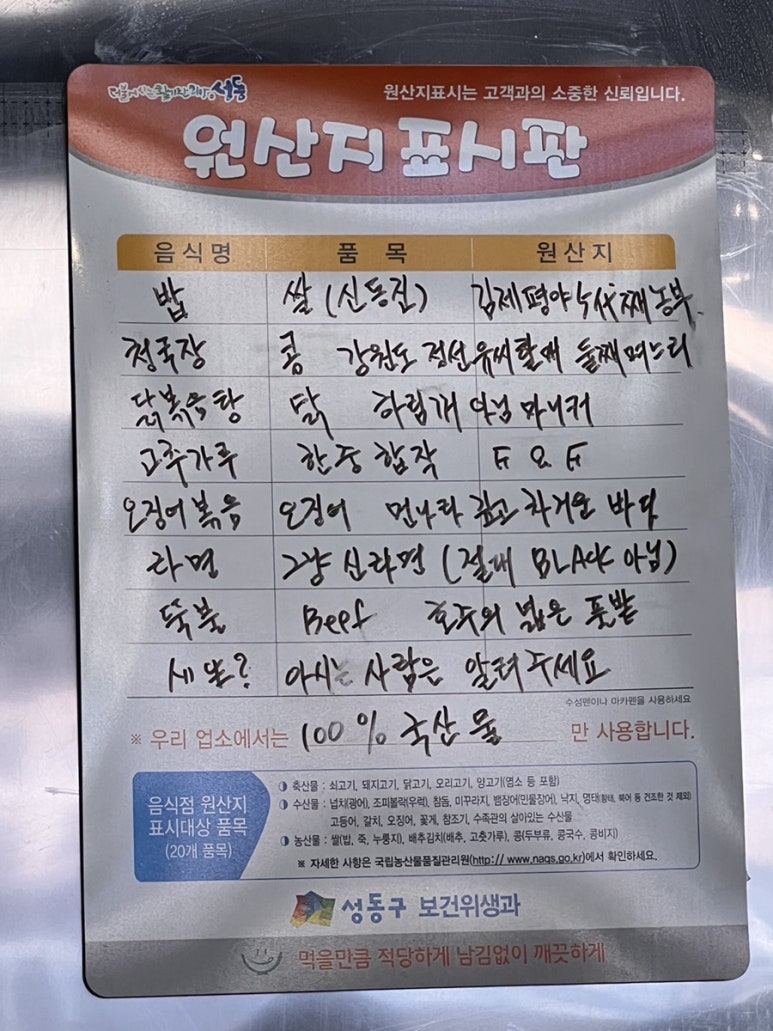 더불어사는 활기찬 희망 성동
원산지표시는 고객과의 소중한 신뢰입니다.
원산지표시판
음식명 품 목 원산지
밥 쌀 (신동진) 김제평야 4代째 농부
청국장 콩 강원도 정선 유씨할매 둘째며느리
닭볶음탕 닭 하림개 아님 마니커
고추가루 한중합작
오징어볶음 오징어 먼나라 깊고 차거운 바다
라면 그냥 신라면 (절대 BLACK 아님)
뚝불 Beef 호주의 넓은 풀밭
아시는 사람은 알려주세요
수성펜이나 마카펜을 사용하세요
※ 우리 업소에서는 100% 국산 물 만 사용합니다.
음식점 원산지
표시대상 품목
(20개 품목)
축산물 : 쇠고기, 돼지고기, 닭고기, 오리고기, 양고기(염소 등 포함)
수산물 : 넙치(광어), 조피볼락(우럭), 참돔, 미꾸라지, 뱀장어(민물장어), 낙지, 명태(황태, 북어 등 건조한 것 제외)
고등어, 갈치, 오징어, 꽃게, 참조기, 수족관의 살아있는 수산물
농산물 : 쌀(밥, 죽, 누룽지), 배추김치(배추, 고춧가루), 콩(두부류, 콩국수, 콩비지)
※ 자세한 사항은 국립농산물품질관리원(http:// www.naqs.go.kr)에서 확인하세요.
성동구 보건위생과
먹을만큼 적당하게 남김없이 깨끗하게